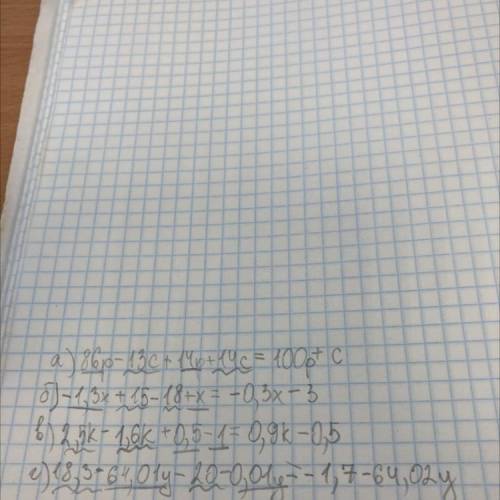 а) 86p-13c+14p+14c = 100p+ c
б) -1,3x+15-18+x = -0,3x-3
в) 2,5k-1,6k+0,5-1 = 0,9k-0,5
г) 18,3-64,01y-20-0,01y = -1,7-64,02y